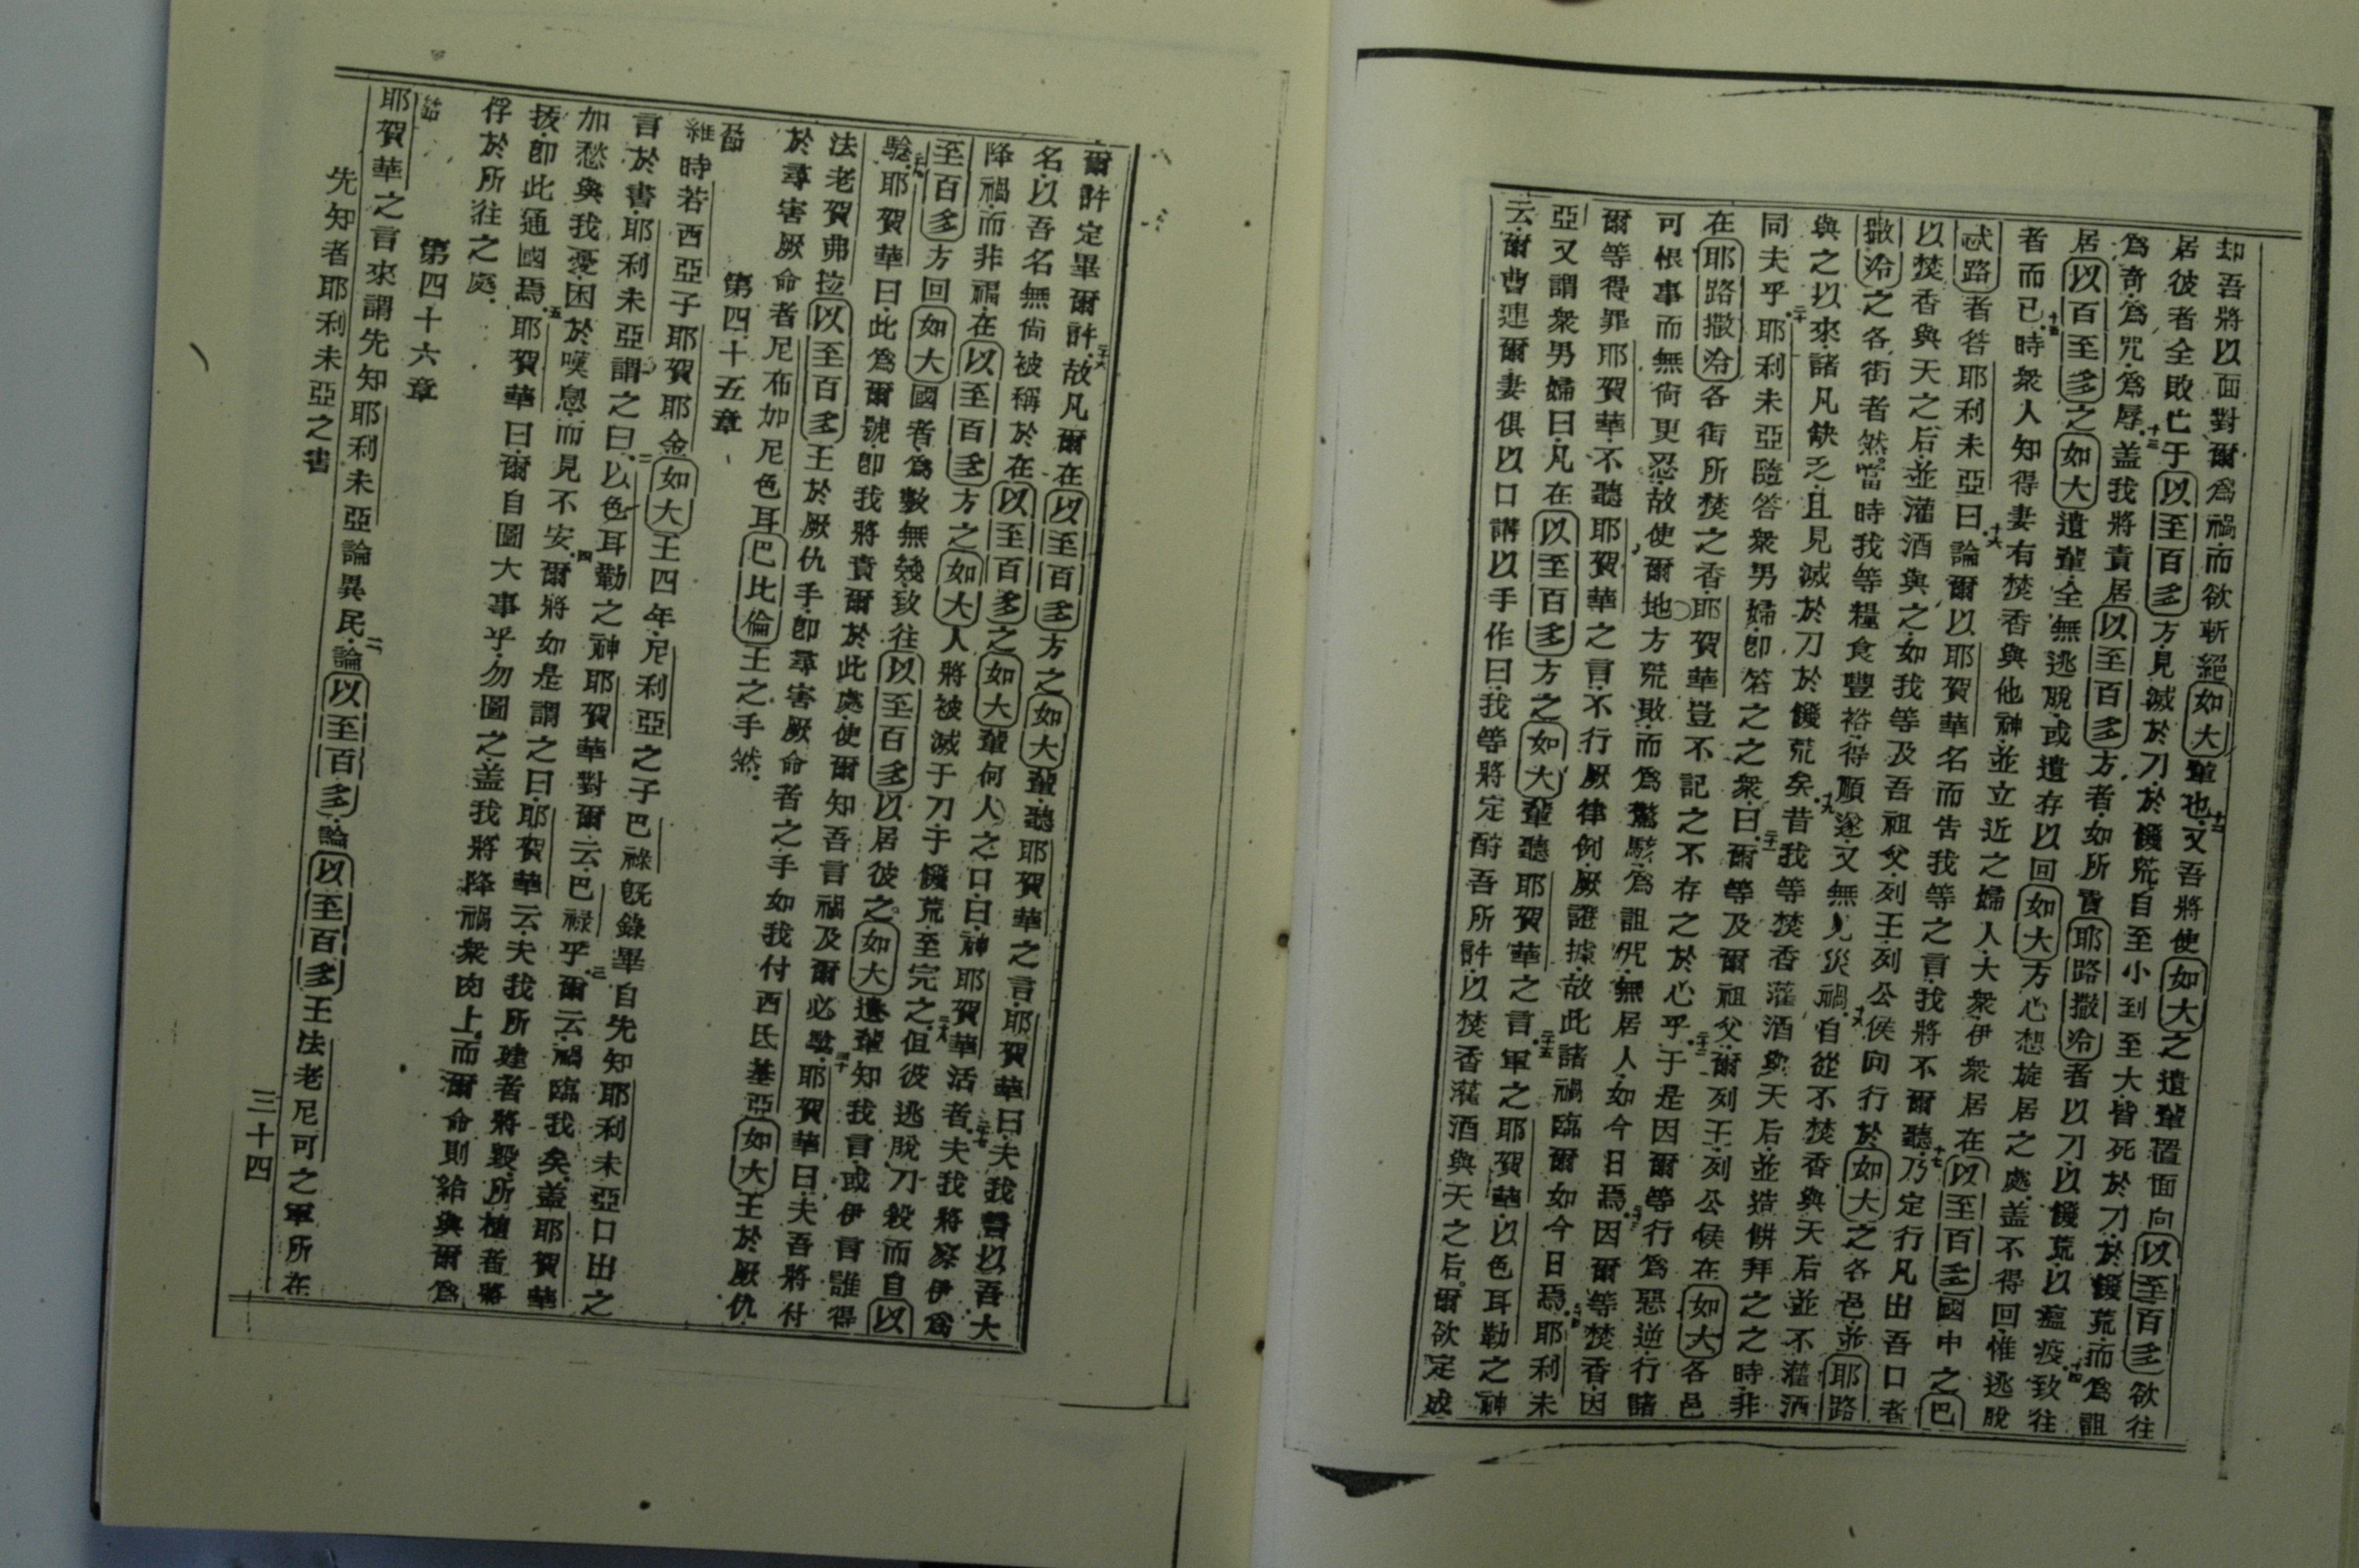 却吾將以面對爾爲禍而欲斬絕如大輩也十二又吾將使如大之遺輩置面向以至百多欲往
居彼者全敗亡于以至百多方見滅於刀於饑荒自至小到至大皆死於刀於饑荒而爲詛
爲奇爲咒爲辱十三盖我將責居以至百多方者如所責耶路撒冷者以刀以饑荒以瘟疫十四致往
居以至百多之如大遺輩全無逃脫或遺存以回如大方心想旋居之處盖不得回惟逃脫
者而已十五時衆人知得妻有焚香與他神並立近之婦人大衆伊衆居在以至百多國中之巴
忒路者答耶利未亞曰十六論爾以耶賀華名而告我等之言我將不爾聽十七乃定行凡出吾口者
以焚香與天之后並灌酒與之如我等及吾祖父列王列公侯向行於如大之各邑並耶路
撒冷之各街者然當時我等糧食豐裕得順遂又無見災禍十八自從不焚香與天后並不灌酒
與之以來諸凡缺乏且見滅於刀於饑荒矣十九昔我等焚香灌酒與天后並造餅拜之之時非
同夫乎二十耶利未亞隨答衆男婦卽答之之衆曰二十一爾等及爾祖父爾列王列公侯在如大各邑
在耶路撒冷各街所焚之香耶賀華豈不記之不存之於心乎二十二于是因爾等行爲惡逆行諸
可恨事而無尙更忍故使爾地方荒敗而爲驚駭爲詛咒無居人如今日焉二十三因爾等焚香因
爾等得罪耶賀華不聽耶賀華之言不行厥律例厥證據故此諸禍臨爾如今日焉二十四耶利未
亞又謂衆男婦曰凡在以至百多方之如大輩聽耶賀華之言二十五軍之耶賀華以色耳勒之神
云爾曹連爾妻俱以口講以手作曰我等將定酧吾所許以焚香灌酒與天之后爾欲定成
爾許定畢爾許二十六故凡爾在以至百多方之如大輩聽耶賀華之言耶賀華曰二十七夫我誓以吾大
名以吾名無尙被稱於在以至百多之如大輩何人之口曰神耶賀華活者夫我將察伊爲
降禍而非福在以至百多方之如大人將被滅于刀于饑荒至完之二十八但彼逃脫刀殺而自以
至百多方回如大國者爲數無幾致往以至百多以居彼之如大遺輩知我言或伊言誰得
驗二十九耶賀華曰此爲爾號卽我將責爾於此處使爾知吾言禍及爾必驗三十耶賀華曰夫吾將付
法老賀弗拉以至百多王於厥仇手卽尋害厥命者之手如我付西氐基亞如大王於厥仇
於尋害厥命者尼布加尼色耳巴比倫王之手然
第四十五章
一節 維時若西亞子耶賀耶金如大王四年尼利亞之子巴祿旣錄畢自先知耶利未亞口出之
言於書耶利未亞謂之曰二以色耳勒之神耶賀華對爾云巴祿乎三爾云禍臨我矣盖耶賀華
加愁與我憂困於嘆息而見不安四爾將如是謂之曰耶賀華云夫我所建者將毀所植者將
拔卽此通國焉五耶賀華曰爾自圖大事乎勿圖之盖我將降禍衆肉上而爾命則給與爾爲
俘於所往之處
第四十六章
一節 耶賀華之言來謂先知耶利未亞論異民二論以至百多論以至百多王法老尼可之軍所在
先知者耶利未亞之書
三十四